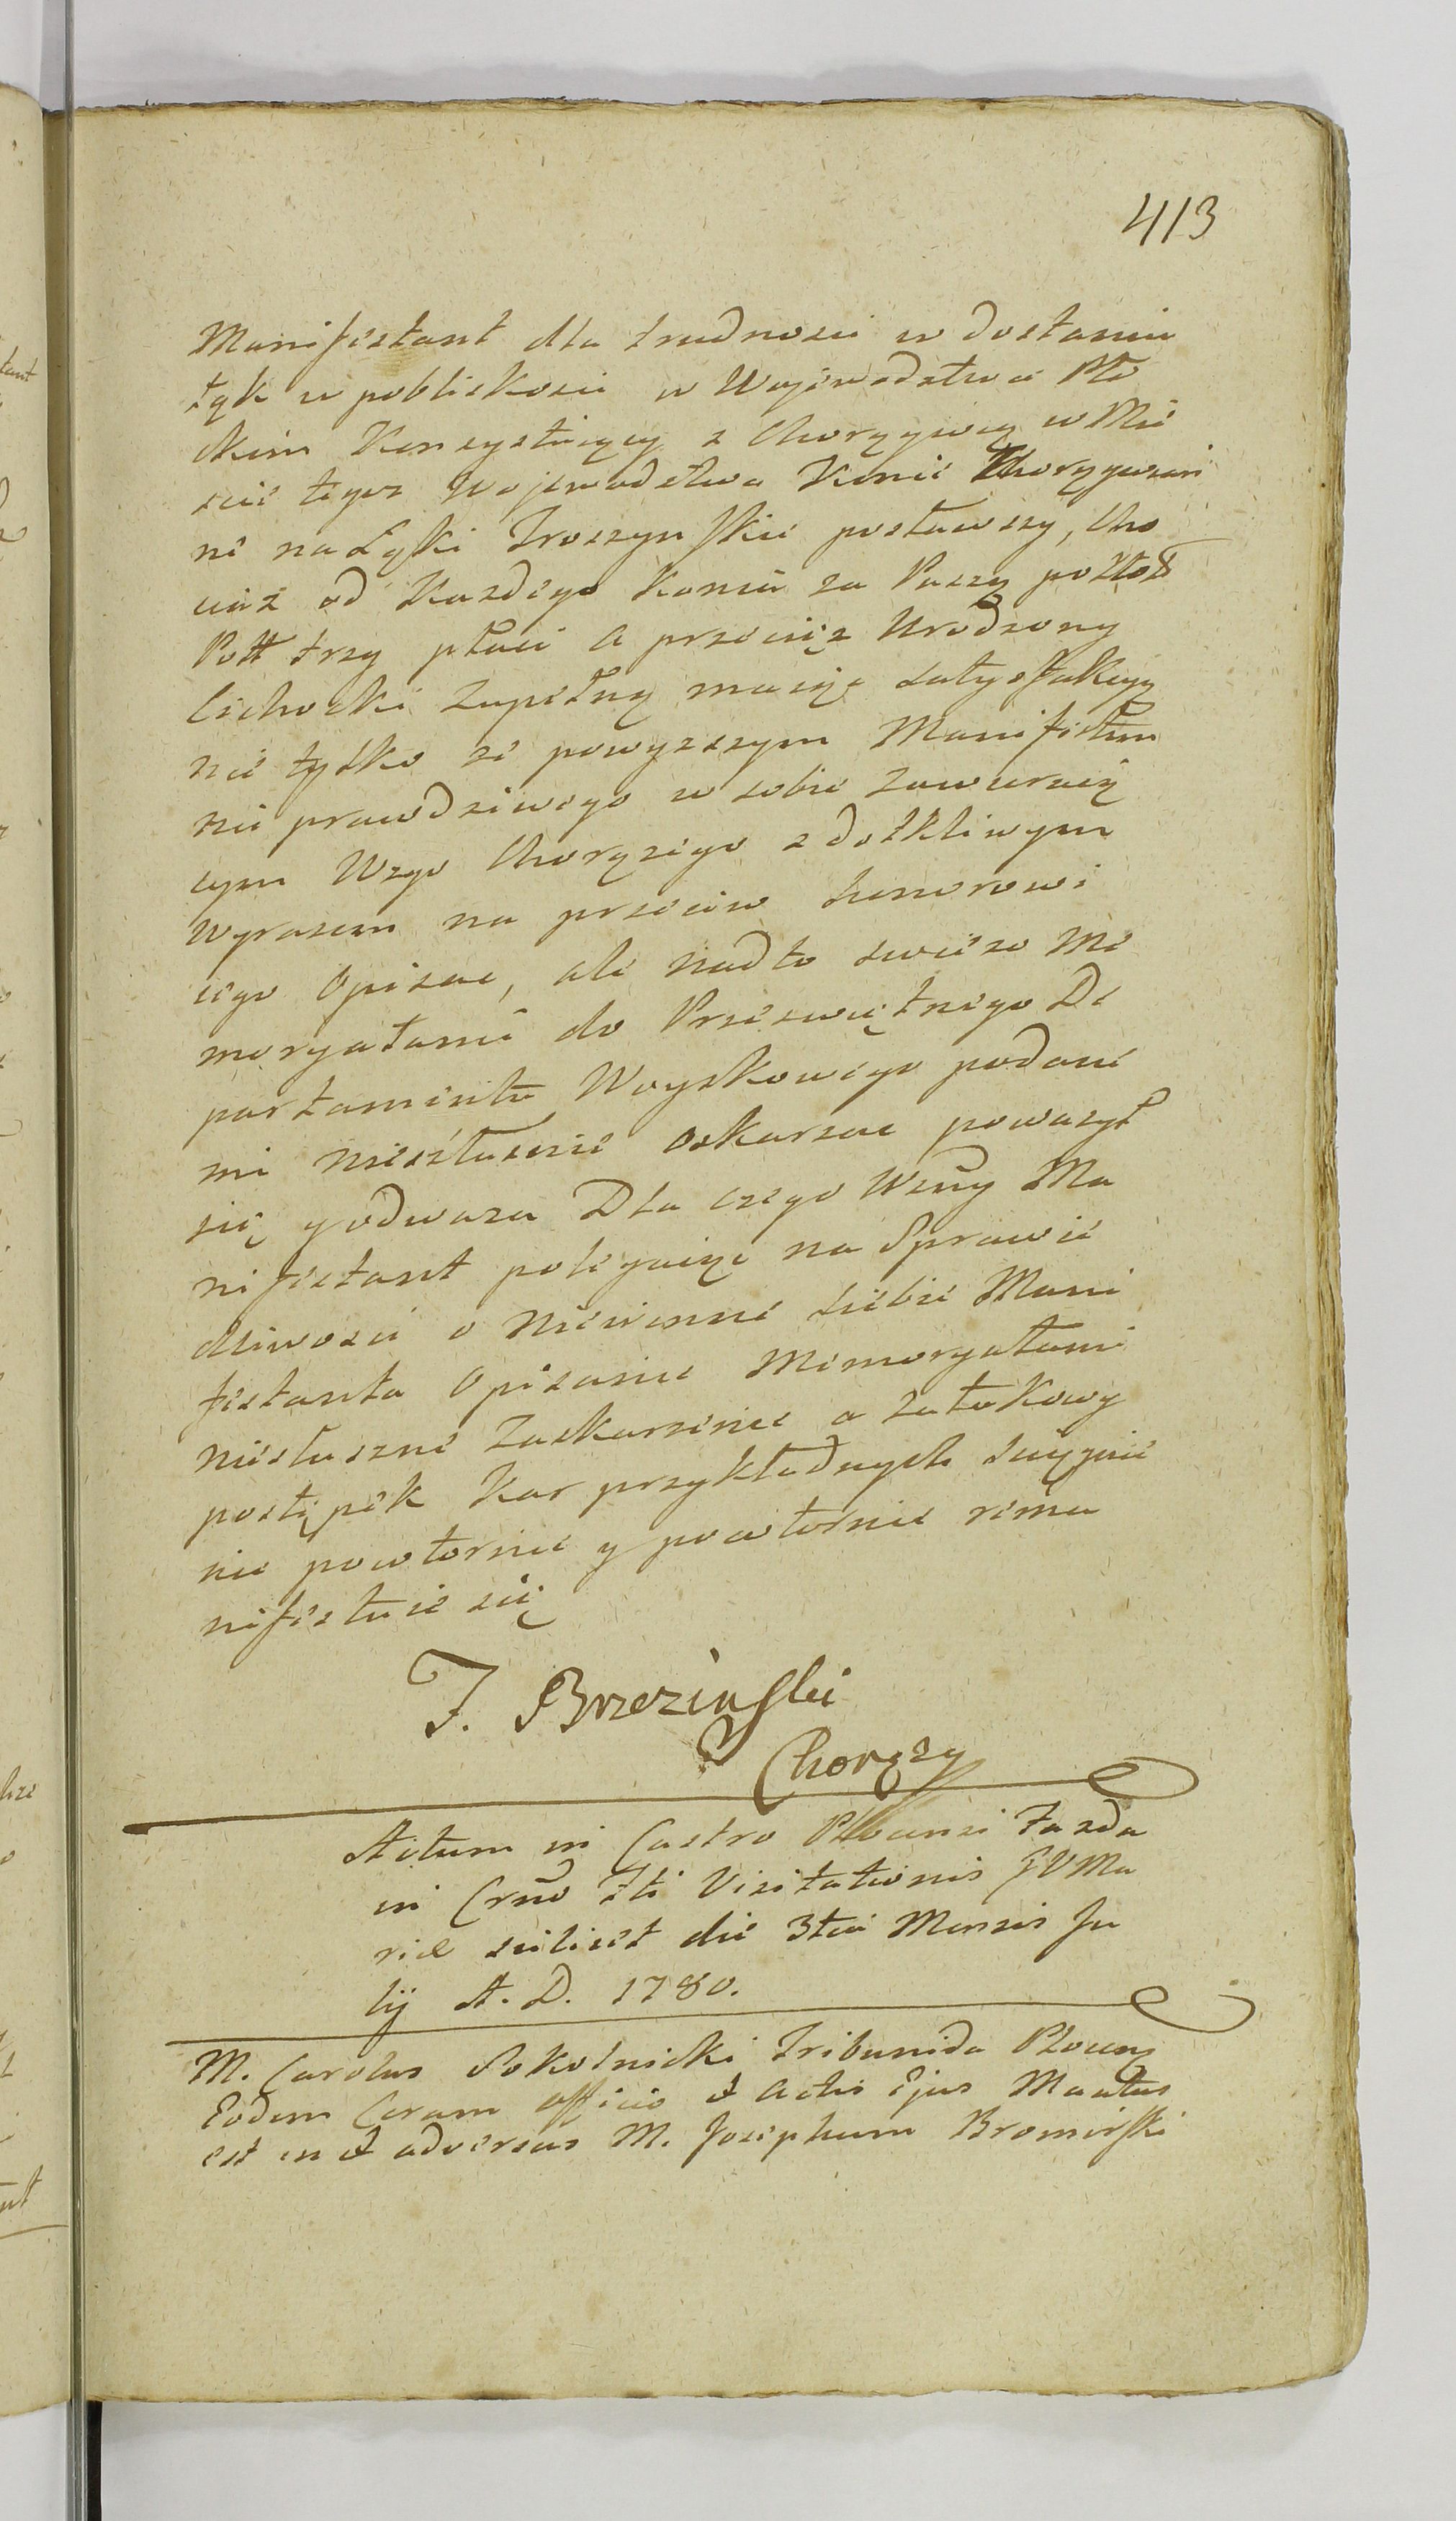 413
Manifestant dla trudnosci w dostaniu
łąk w pobliskosci w Wojewodztwie Pło
ckim Konsystuiący z Chorągwią w Mie
scie tegoz Wojewodztwa Konie Chorągwian
ne na Łąki Troszynskie postawszy, Cho
ciaz od Kazdego Konia za Paszą po Złott
Poll trzy płaci a przeciez Urodzony
Cichocki Zupełną maiąc satysfakcyą
nie tylko ze powyzszym Manifestem
nie prawdziwego w sobie zawieraią
cym Wzgo Chorązego z dotkliwym
wyrazem na przeciw honorowi
iego Opisac, ale nadto swiezo Me
moryałami do Przeświętnego De
partamentu Woyskowego podane
mi niesłusznie oskarzac powazył
się y odwaza Dla czego Wzny Ma
nifestant polegaiąc na Sprawie
dliwosci o niewinne siebie Mani
festanta Opisanie Memoryałami
niesłuszne Zaskarzenie a za takowy
postępek Kar przykładnych sciągnie
nie powtornie y powtornie rema
nifestuie się
J. Brzezinski
Chorązy
Actum in Castro Plocensi Fa zda
in Crno Fti Visitationis BVMa
riæ scilicet die 3tia Mensis Ju
lij A. D. 1780.
M. Carolus Sokolnicki Tribunida Plocens
Eodem Coram officio et Actis Ejus Mantus
est in et adversus M. Josephum Bromirski